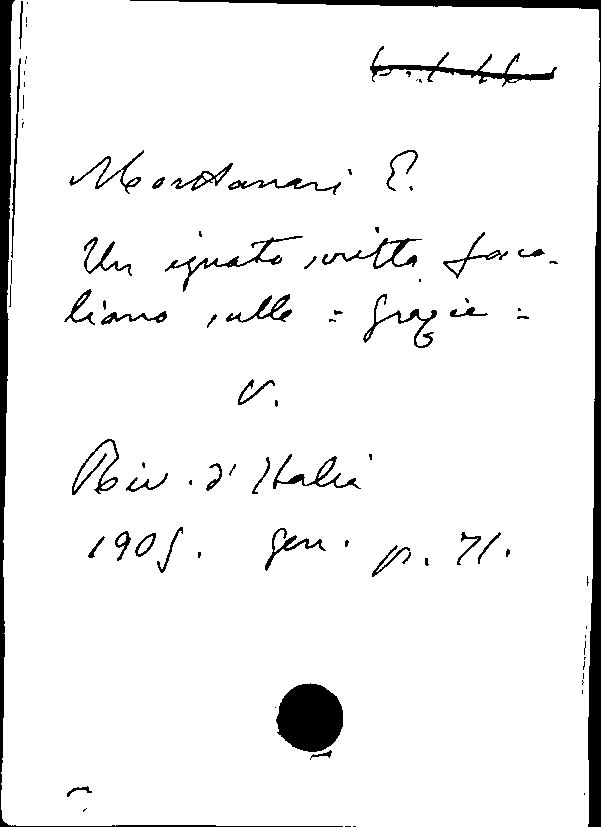 Montanari E.
Un ignoto scritto fosco-
liano sulle = Grazie =
v.
Riv. d'Italia
1905. gen. p. 71.